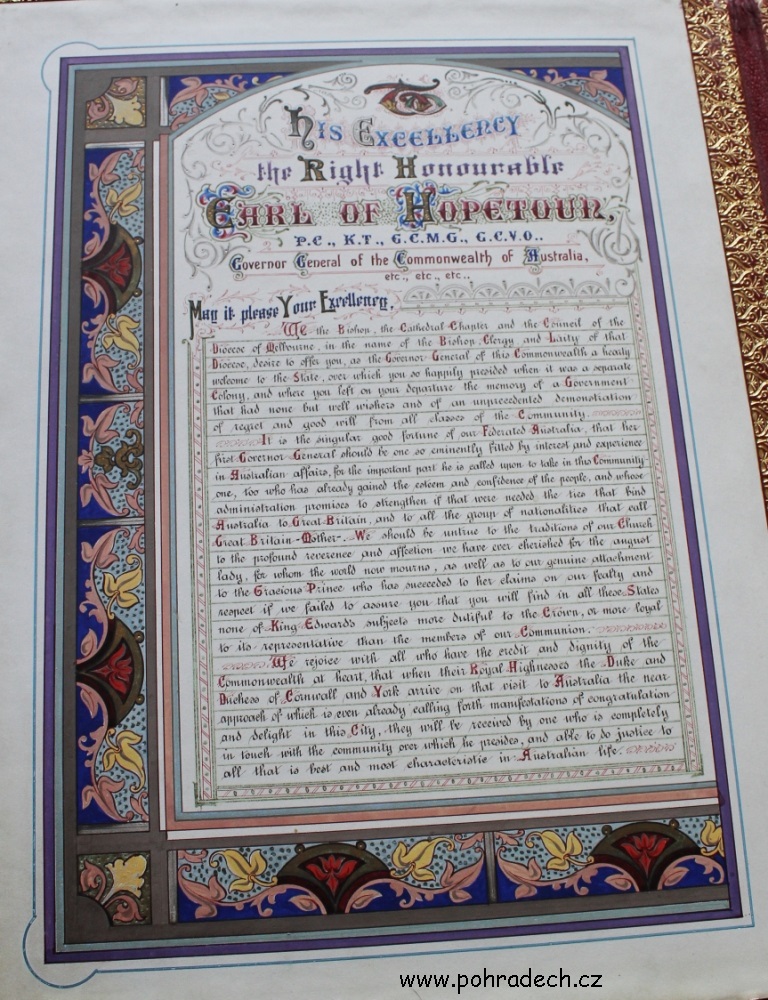 His Excellency
the Right Honourable
Earl of Hopetoun,
P.C., K.T., G.C.M.G., G.C.V.O.,
Governor General of the Commonwealth of Australia,
etc., etc., etc.,
May it please Your Excellency
We the Bishop, the Cathedral Chapter and the Council of the
Diocese of Melbourne in the name of the Bishop Clergy and Laity of that
Diocese, desire to offer you as the Governor General of this Commonwealth a hearty
welcome to the State, over which you so happily presided when it was a separate
Colony, and where you left on your departure the memory of a Government
that had none but well wishers and of an unprecedented demonstration
of regret and good will from all classes of the Community
It is the singular good fortune of our Federated Australia, that her
first Governor General should be one so eminently fitted by interest and experience
in Australian affairs, for the important part he is called upon to take in this Community
one, too who has already gained the esteem and confidence of the people, and whose
administration promises to strengthen if that were needed the ties that bind
Australia to Great Britain, and to all the group of nationalities that call
Great Britain-Mother. We should be untrue to the traditions of our Church
to the profound reverence and affection we have ever cherished for the august
lady, for whom the world now mourns, as well as to our genuine attachment
to the Gracious Prince who has succeeded to her claims on our fealty and
respect if we failed to assure you that you will find in all these States
none of King Edwards subjects more dutiful to the Crown, or more loyal
to its representative than the members of our Communion.
We rejoice with all who have the credit and dignity of the
Commonwealth at heart, that when their Royal Highnesses the Duke and
Duchess of Cornwall and York arrive on that visit to Australia the near
approach of which is even already calling forth manifestations of congratulation
and delight in this City, they will be received by one who is completely
in touch with the community over which he presides, and able to do justice to
all that is best and most characteristic in Australian life.
www.pohradech.cz